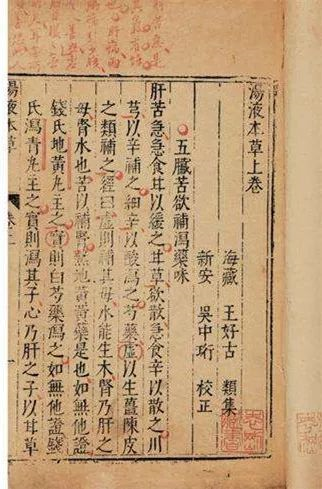 湯液本草上卷
海藏 王好古 類集
新安 吳中珩 校正
五臟苦欲補瀉藥味
肝苦急急食甘以緩之甘草欲散急食辛以散之川
芎以辛補之細辛以酸瀉之芍藥虛以生薑陳皮
之類補之經曰虛則補其母水能生木腎乃肝之
母腎水也苦以補腎熟地黃黃蘗是也如無他證
錢氏地黃丸主之實則白芍藥瀉之如無他證錢
氏瀉青丸主之實則瀉其子心乃肝之子以甘草
湯液本草